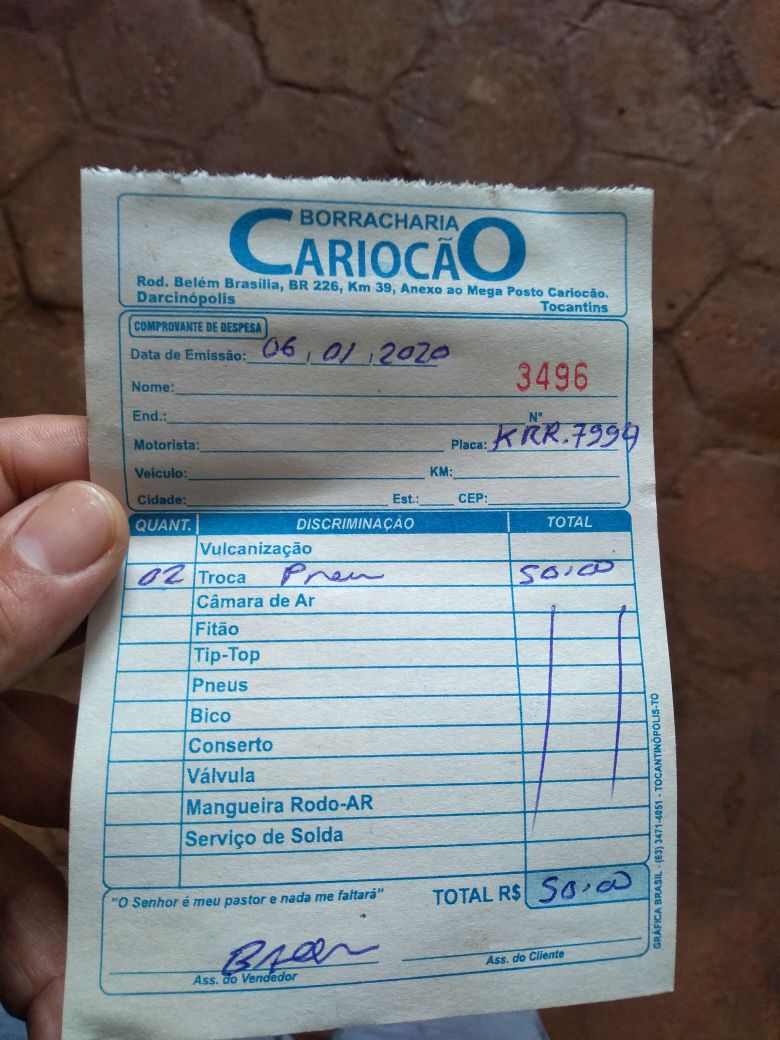 BORRACHARIA
CARIOCÃO
Rod. Belém Brasília, BR 226, Km 39, Anexo ao Mega Posto Cariocão.
Darcinópolis Tocantins
COMPROVANTE DE DESPESA
Data de Emissão: 06, 01, 2020
Nome: 3496
End.: N°
Motorista: Placa: KRR.7994
Veiculo: KM:
Cidade: Est.: CEP:
QUANT. DISCRIMINAÇÃO TOTAL
Vulcanização
02 Troca Pneu 50,00
Câmara de Ar
Fitão
Tip-Top
Pneus
Bico
Conserto
Válvula
Mangueira Rodo-AR
Serviço de Solda
"O Senhor é meu pastor e nada me faltará" TOTAL R$ 50,00
Ass. do Vendedor Ass. do Cliente
GRÁFICA BRASIL - (63) 3471-4051 - TOCANTINÓPOLIS-TO